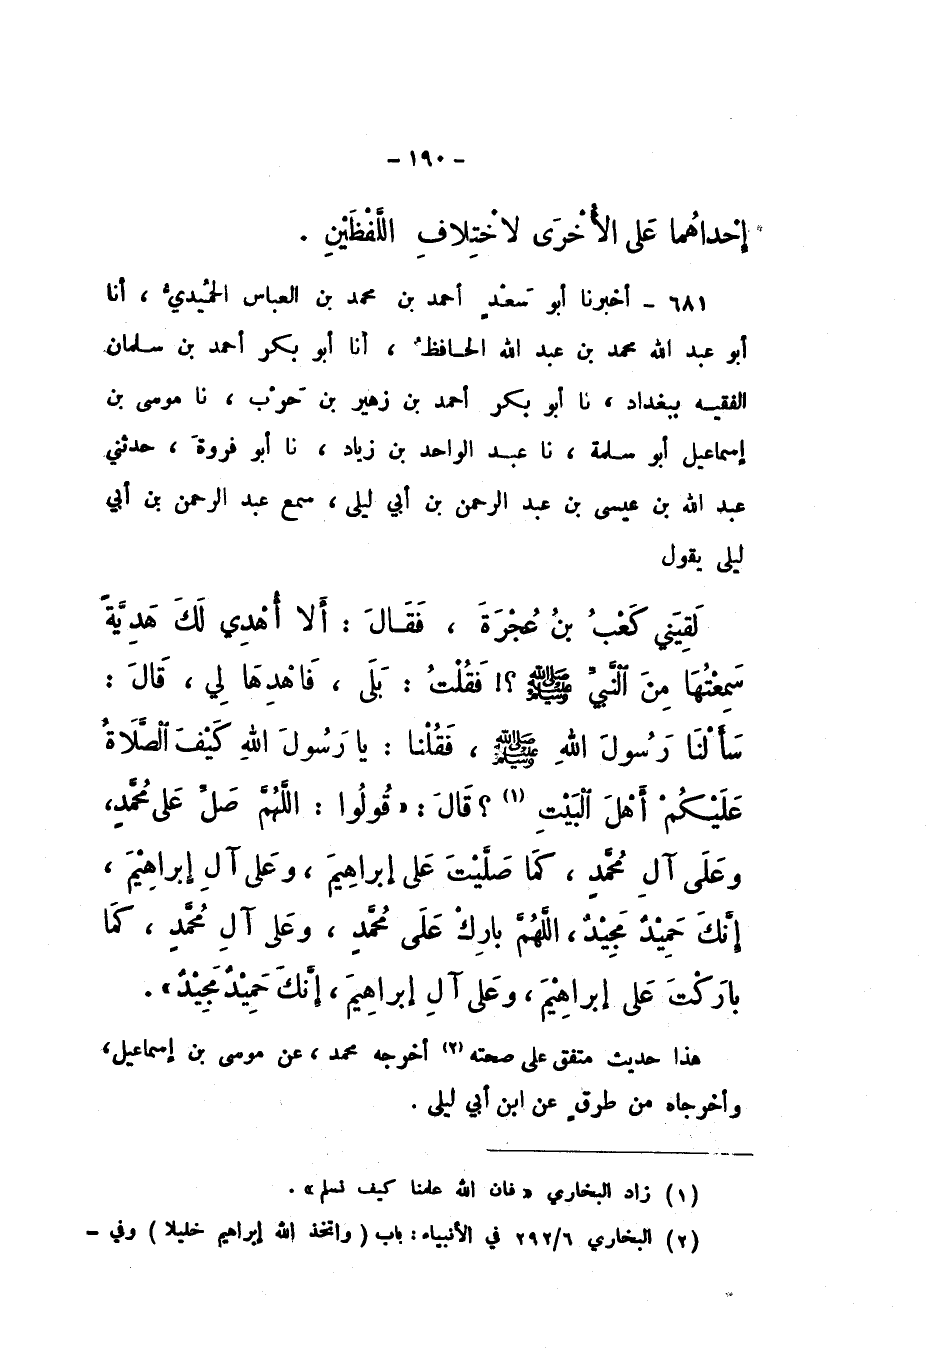 - ١٩٠ -
إِحْداهُما عَلى الأُخْرَى لاخْتِلافِ اللَّفْظَيْنِ .
٦٨١ - أخبرنا أبو سَعْدٍ أحمد بن محمد بن العباس الحُمَيْديُّ ، أنا
أبو عبد الله محمد بن عبد الله الحافظُ ، أنا أبو بكر أحمد بن سلمان
الفقيه ببغداد ، نا أبو بكر أحمد بن زهير بن حَرْب ، نا موسى بن
إسماعيل أبو سلمة ، نا عبد الواحد بن زياد ، نا أبو فروةَ ، حدثني
عبد الله بن عيسى بن عبد الرحمن بن أبي ليلى ، سمع عبد الرحمن بن أبي
ليلى يقول
لَقِيَني كَعْبُ بنُ عُجْرَةَ ، فَقَالَ : أَلا أُهْدِي لَكَ هَدِيَّةً
سَمِعْتُهَا مِنَ النَّبيِّ ﷺ ؟! فَقُلْتُ : بَلَى ، فَاهْدِهَا لِي ، قَالَ :
سَأَلْنَا رَسُولَ اللهِ ﷺ ، فَقُلْنا : يا رَسُولَ اللهِ كَيْفَ الصَّلَاةُ
عَلَيْكُمْ أَهْلَ البَيْتِ (١) ؟ قَالَ : « قُولُوا : اللَّهُمَّ صَلِّ عَلى مُحَمَّدٍ ،
وعَلَى آلِ مُحَمَّدٍ ، كَمَا صَلَّيْتَ عَلى إبراهِيمَ ، وعَلى آلِ إبراهِيْمَ ،
إنَّكَ حَمِيْدٌ مَجِيْدٌ ، اللَّهُمَّ بارِكْ عَلَى مُحَمَّدٍ ، وعَلى آلِ مُحَمَّدٍ ، كَمَا
بارَكْتَ عَلى إبراهِيْمَ ، وعَلى آلِ إبراهِيمَ ، إنَّكَ حَمِيْدٌ مَجِيْدٌ » .
هذا حديث متفق على صحته (٢) أخرجه محمد ، عن موسى بن إسماعيل ،
وأخرجاه من طرقٍ عن ابن أبي ليلى .
(١) زاد البخاري « فان الله علمنا كيف نسلم » .
(٢) البخاري ٢٩٢/٦ في الأنبياء : باب ( واتخذ الله إبراهيم خليلا ) وفي -